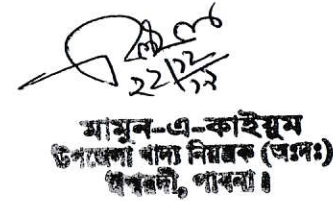 ২২/১২/১৯
মামুন-এ-কাইয়ুম
উপজেলা খাদ্য নিয়ন্ত্রক (অঃদঃ)
ঈশ্বরদী, পাবনা।